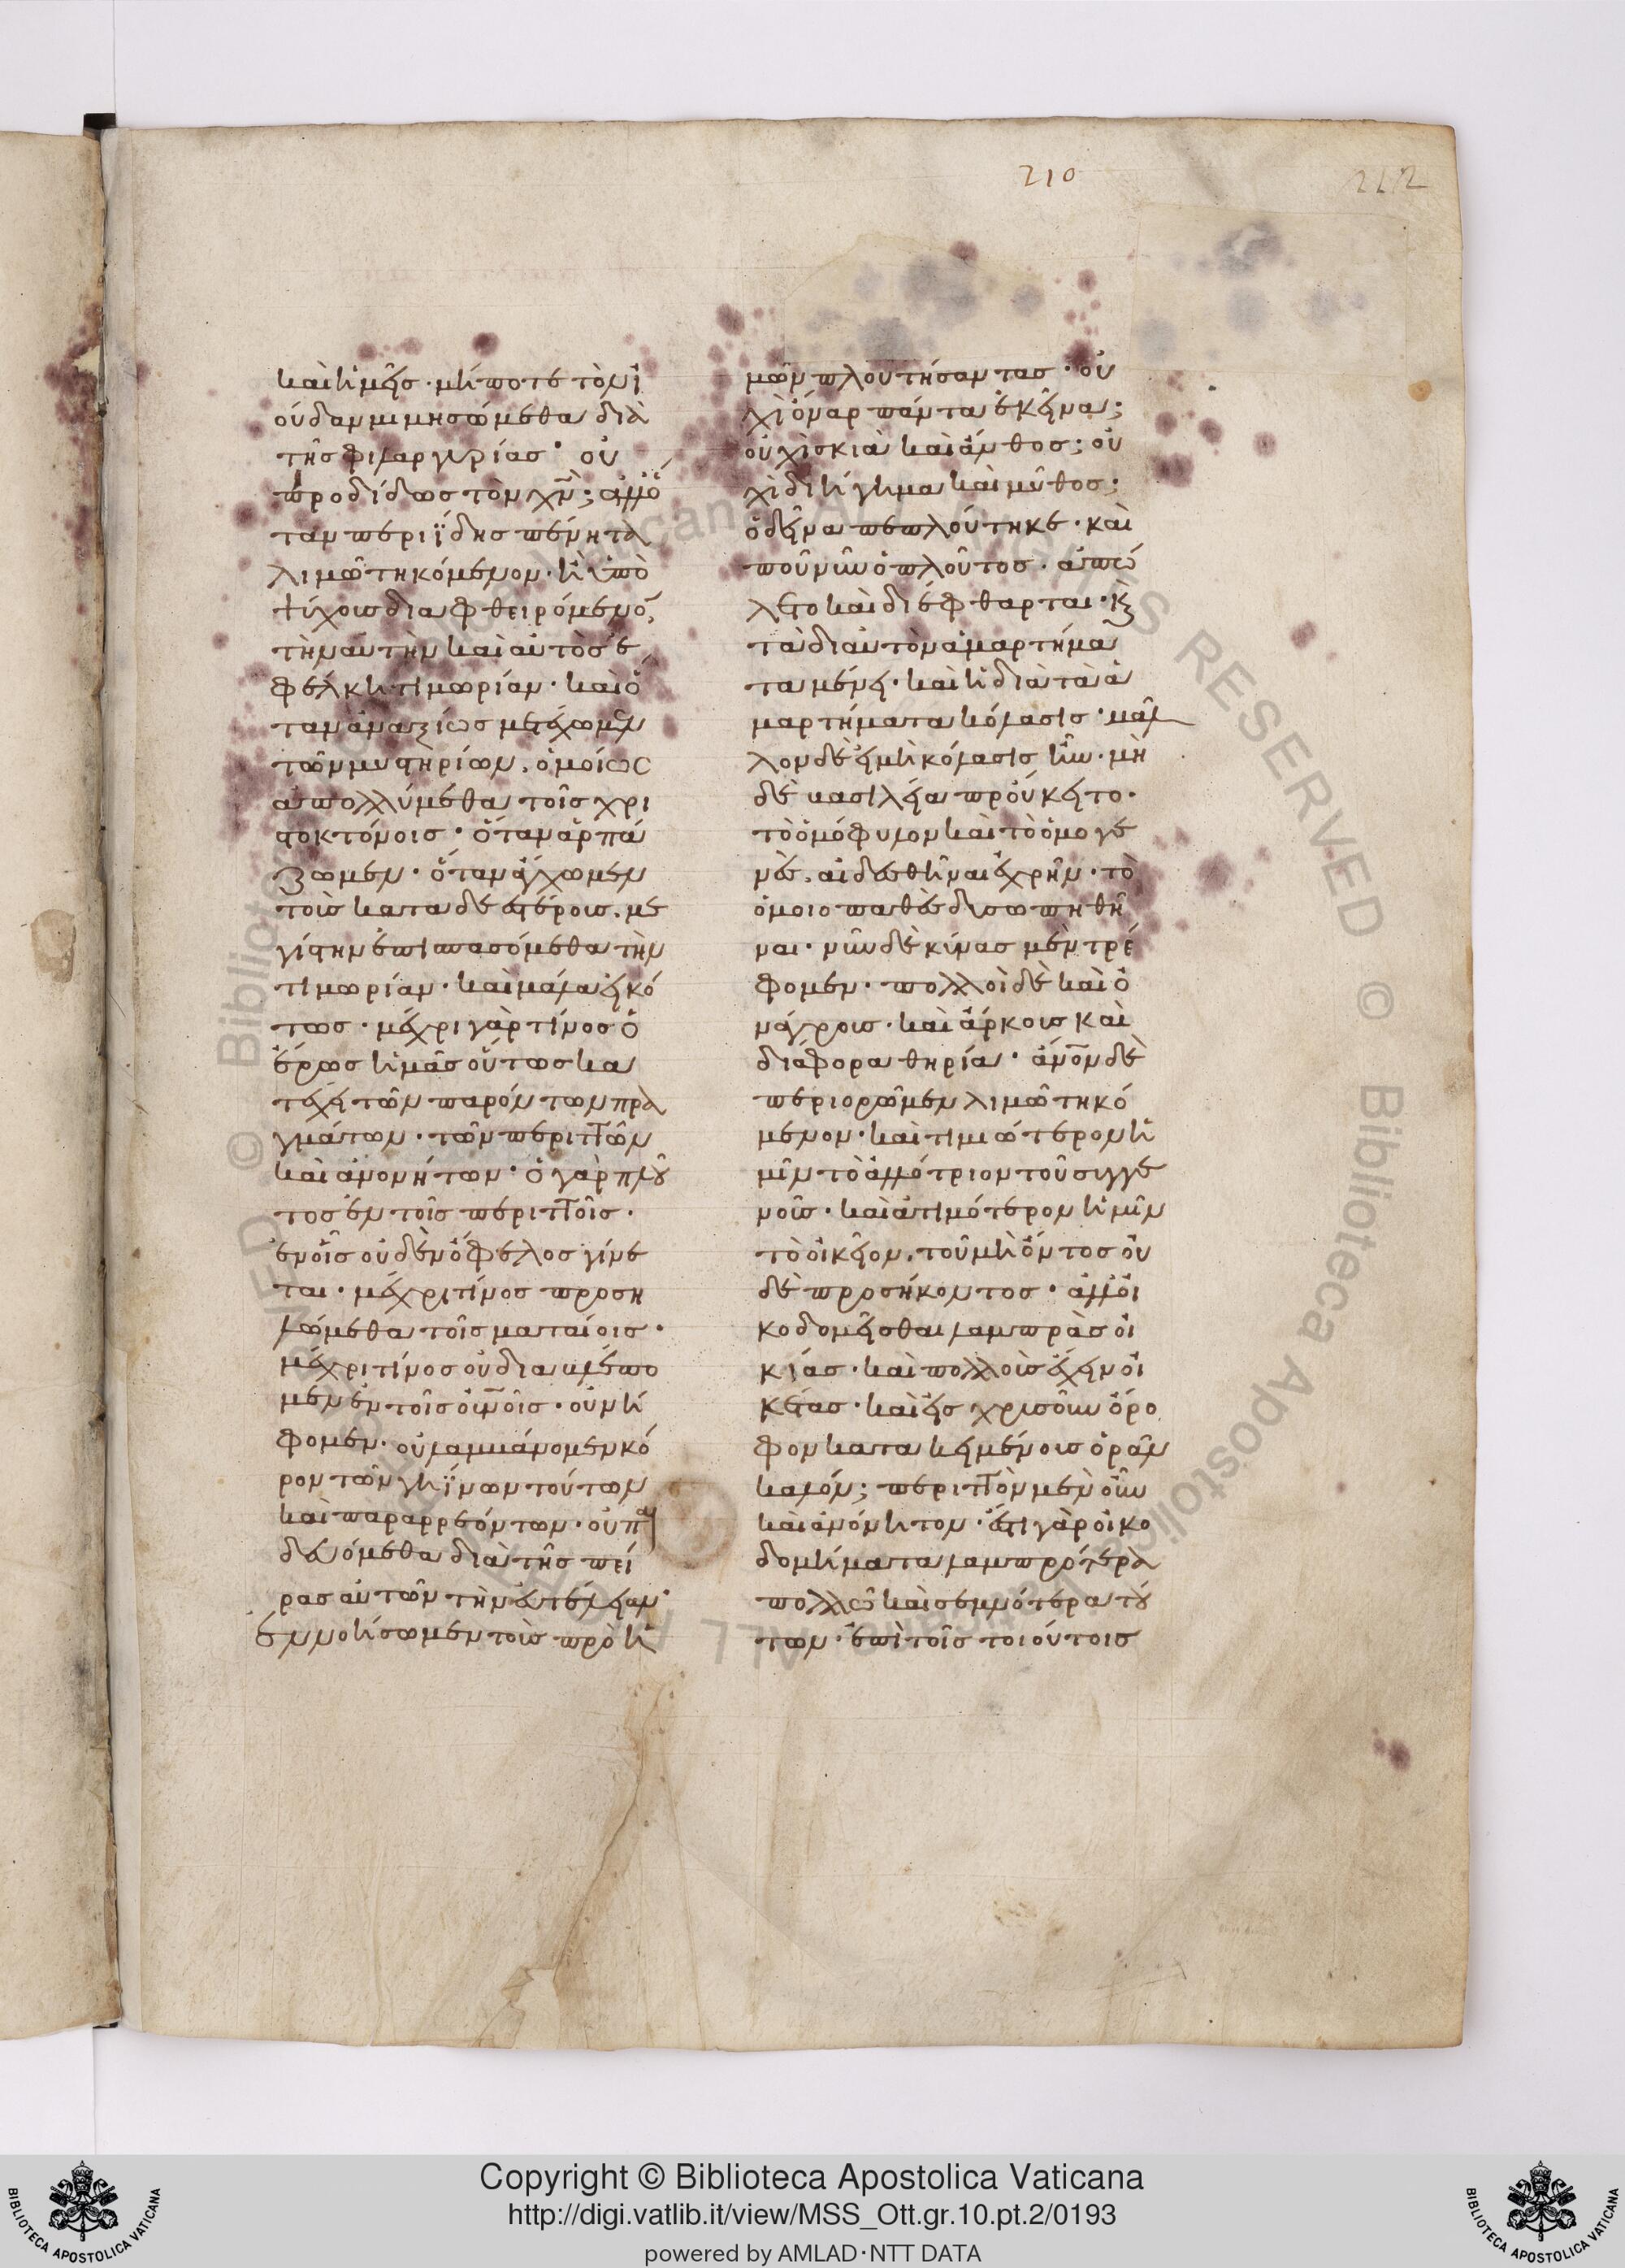 210
212
καὶ ἡμεῖς · μήποτε τὸν ἰ
ούδαν μιμησώμεθα διὰ
τῆς φιλαργυρίας · οὐ
προδίδως τὸν χν̅; ἀλλ' ὅ
ταν περιΐδης πένητα
λιμῶ τηκόμενον · ἢ ὑπὸ
ψύχους διαφθειρόμενον,
τὴν αὐτὴν καὶ αὐτὸς ἐ
φέλκη τιμωρίαν · καὶ ὅ
ταν ἀναξίως μετέχωμεν
τῶν μυστηρίων, ὁμοίως
ἀπολλύμεθα τοῖς χρι
στοκτόνοις · ὅταν ἁρπά
ζωμεν · ὅταν ἄγχωμεν
τοὺς καταδεεστέρους, με
γίστην ἐπισπασόμεθα τὴν
τιμωρίαν · καὶ μάλα εἰκό
τως · μέχρι γὰρ τίνος ὁ
ἔρως ἡμᾶς οὕτως κα
τέχει τῶν παρόντων πρα
γμάτων · τῶν περιττῶν
καὶ ἀνονήτων · ὁ γὰρ πλοῦ
τος ἐν τοῖς περιττοῖς ·
ἐν οἷς οὐδὲν ὄφελος γίνε
ται · μέχρι τίνος προση
λώμεθα τοῖς ματαίοις ·
μέχρι τίνος οὐ διαβλέπο
μεν ἐν τοῖς οὐνοῖς · οὐ νή
φομεν · οὐ λαμβάνομεν κό
ρον τῶν γηΐνων τούτων
καὶ παραρρεόντων · οὐ παι
δευόμεθα διὰ τῆς πεί
ρας αὐτῶν τὴν εὐτέλειαν ·
ἐννοήσωμεν τοὺς πρὸ ἡ
μῶν πλουτήσαντας · οὐ
χὶ ὄναρ πάντα ἐκεῖνα;
οὐχὶ σκιὰ καὶ ἄνθος; οὐ
χὶ διήγημα καὶ μῦθος;
ὁ δεῖνα πεπλούτηκε · καὶ
ποῦ νῦν ὁ πλοῦτος · ἀπώ
λετο καὶ διέφθαρται · κ
τὰ δι' αὐτὸν ἁμαρτήμα
τα μένει · καὶ ἡ διὰ τὰ ἁ
μαρτήματα κόλασις · μᾶλ
λον δὲ εἰ μὴ κόλασις ἦν · μὴ
δὲ βασιλεία προύκειτο ·
τὸ ὁμόφυλον καὶ τὸ ὁμογε
νὲς, αἰδεσθῆναι ἐχρῆν · τὸ
ὁμοιοπαθὲς δυσωπηθῆ
ναι · νῦν δὲ κύνας μὲν τρέ
φομεν · πολλοὶ δὲ καὶ ὀ
νάγρους · καὶ ἄρκους καὶ
διάφορα θηρία · ἄνον δὲ
περιορῶμεν λιμῶ τηκό
μενον · καὶ τιμιώτερον ἡ
μῖν τὸ ἀλλότριον τοῦ συγγε
νοῦς · καὶ ἀτιμότερον ἡμῖν
τὸ οἰκεῖον, τοῦ μὴ ὄντος οὐ
δὲ προσήκοντος · ἀλλ' οἰ
κοδομεῖσθαι λαμπρὰς οἰ
κίας · καὶ πολλοὺς ἔχειν οἰ
κέτας · καὶ εἰς χρυσοῦν ὄρο
φον κατακειμένους ὁρᾶν
καλόν; περιττὸν μὲν οὖν
καὶ ἀνόνητον · ἔστι γὰρ οἰκο
δομήματα λαμπρότερα
πολλῶ καὶ σεμνότερα τού
των · ἐπὶ τοῖς τοιούτοις
Copyright © Biblioteca Apostolica Vaticana
http://digi.vatlib.it/view/MSS_Ott.gr.10.pt.2/0193
powered by AMLAD·NTT DATA
BIBLIOTECA APOSTOLICA VATICANA
BIBLIOTECA APOSTOLICA VATICANA